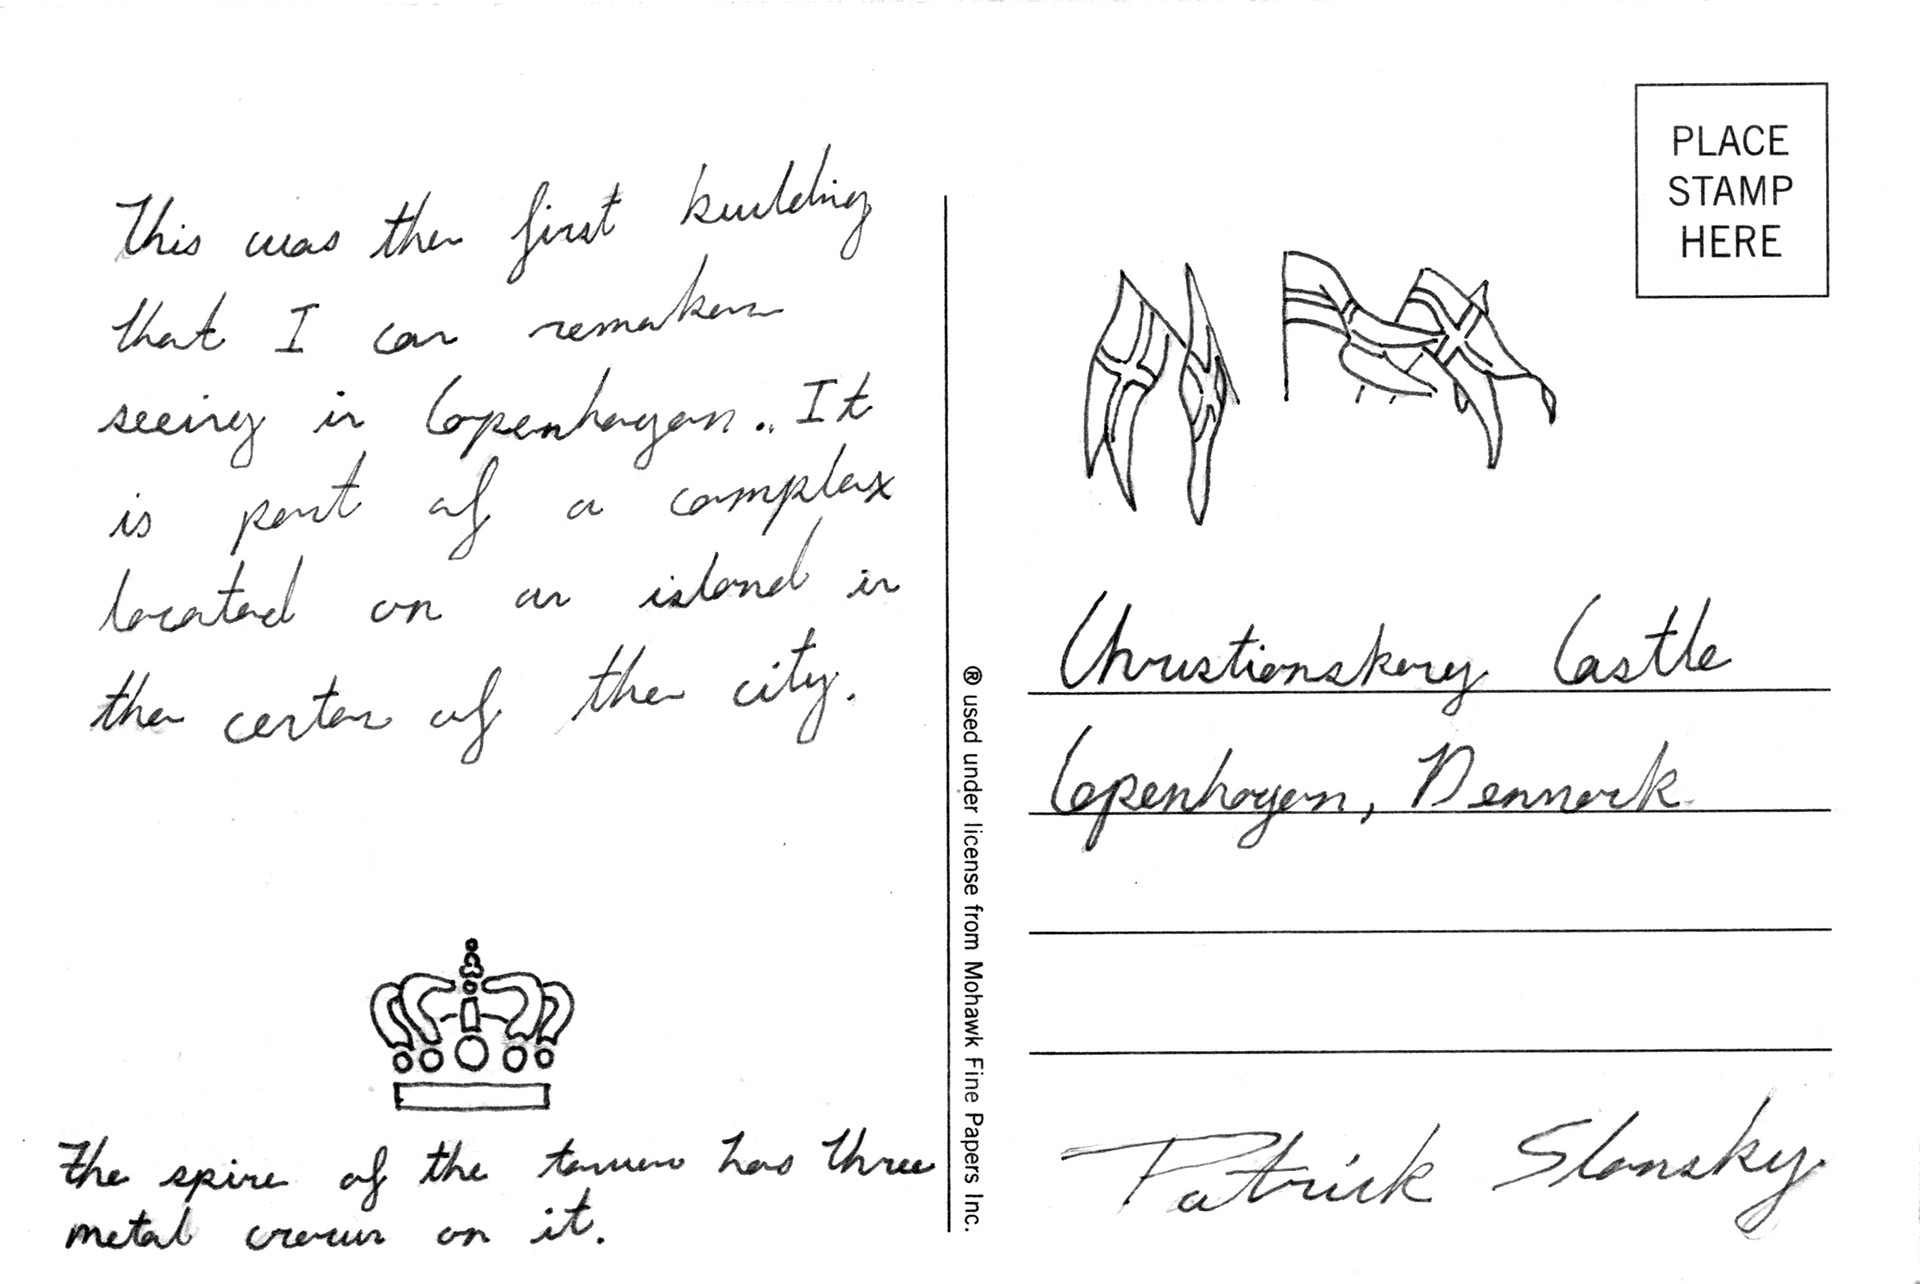 This was the first building
that I can remember
seeing in Copenhagen.. It
is part of a complex
located on an island in
the center of the city.
The spire of the tower has three
metal crown on it.
® used under license from Mohawk Fine Papers Inc.
PLACE
STAMP
HERE
Christianskorg Castle
Copenhagen, Denmark
Patrick Slansky